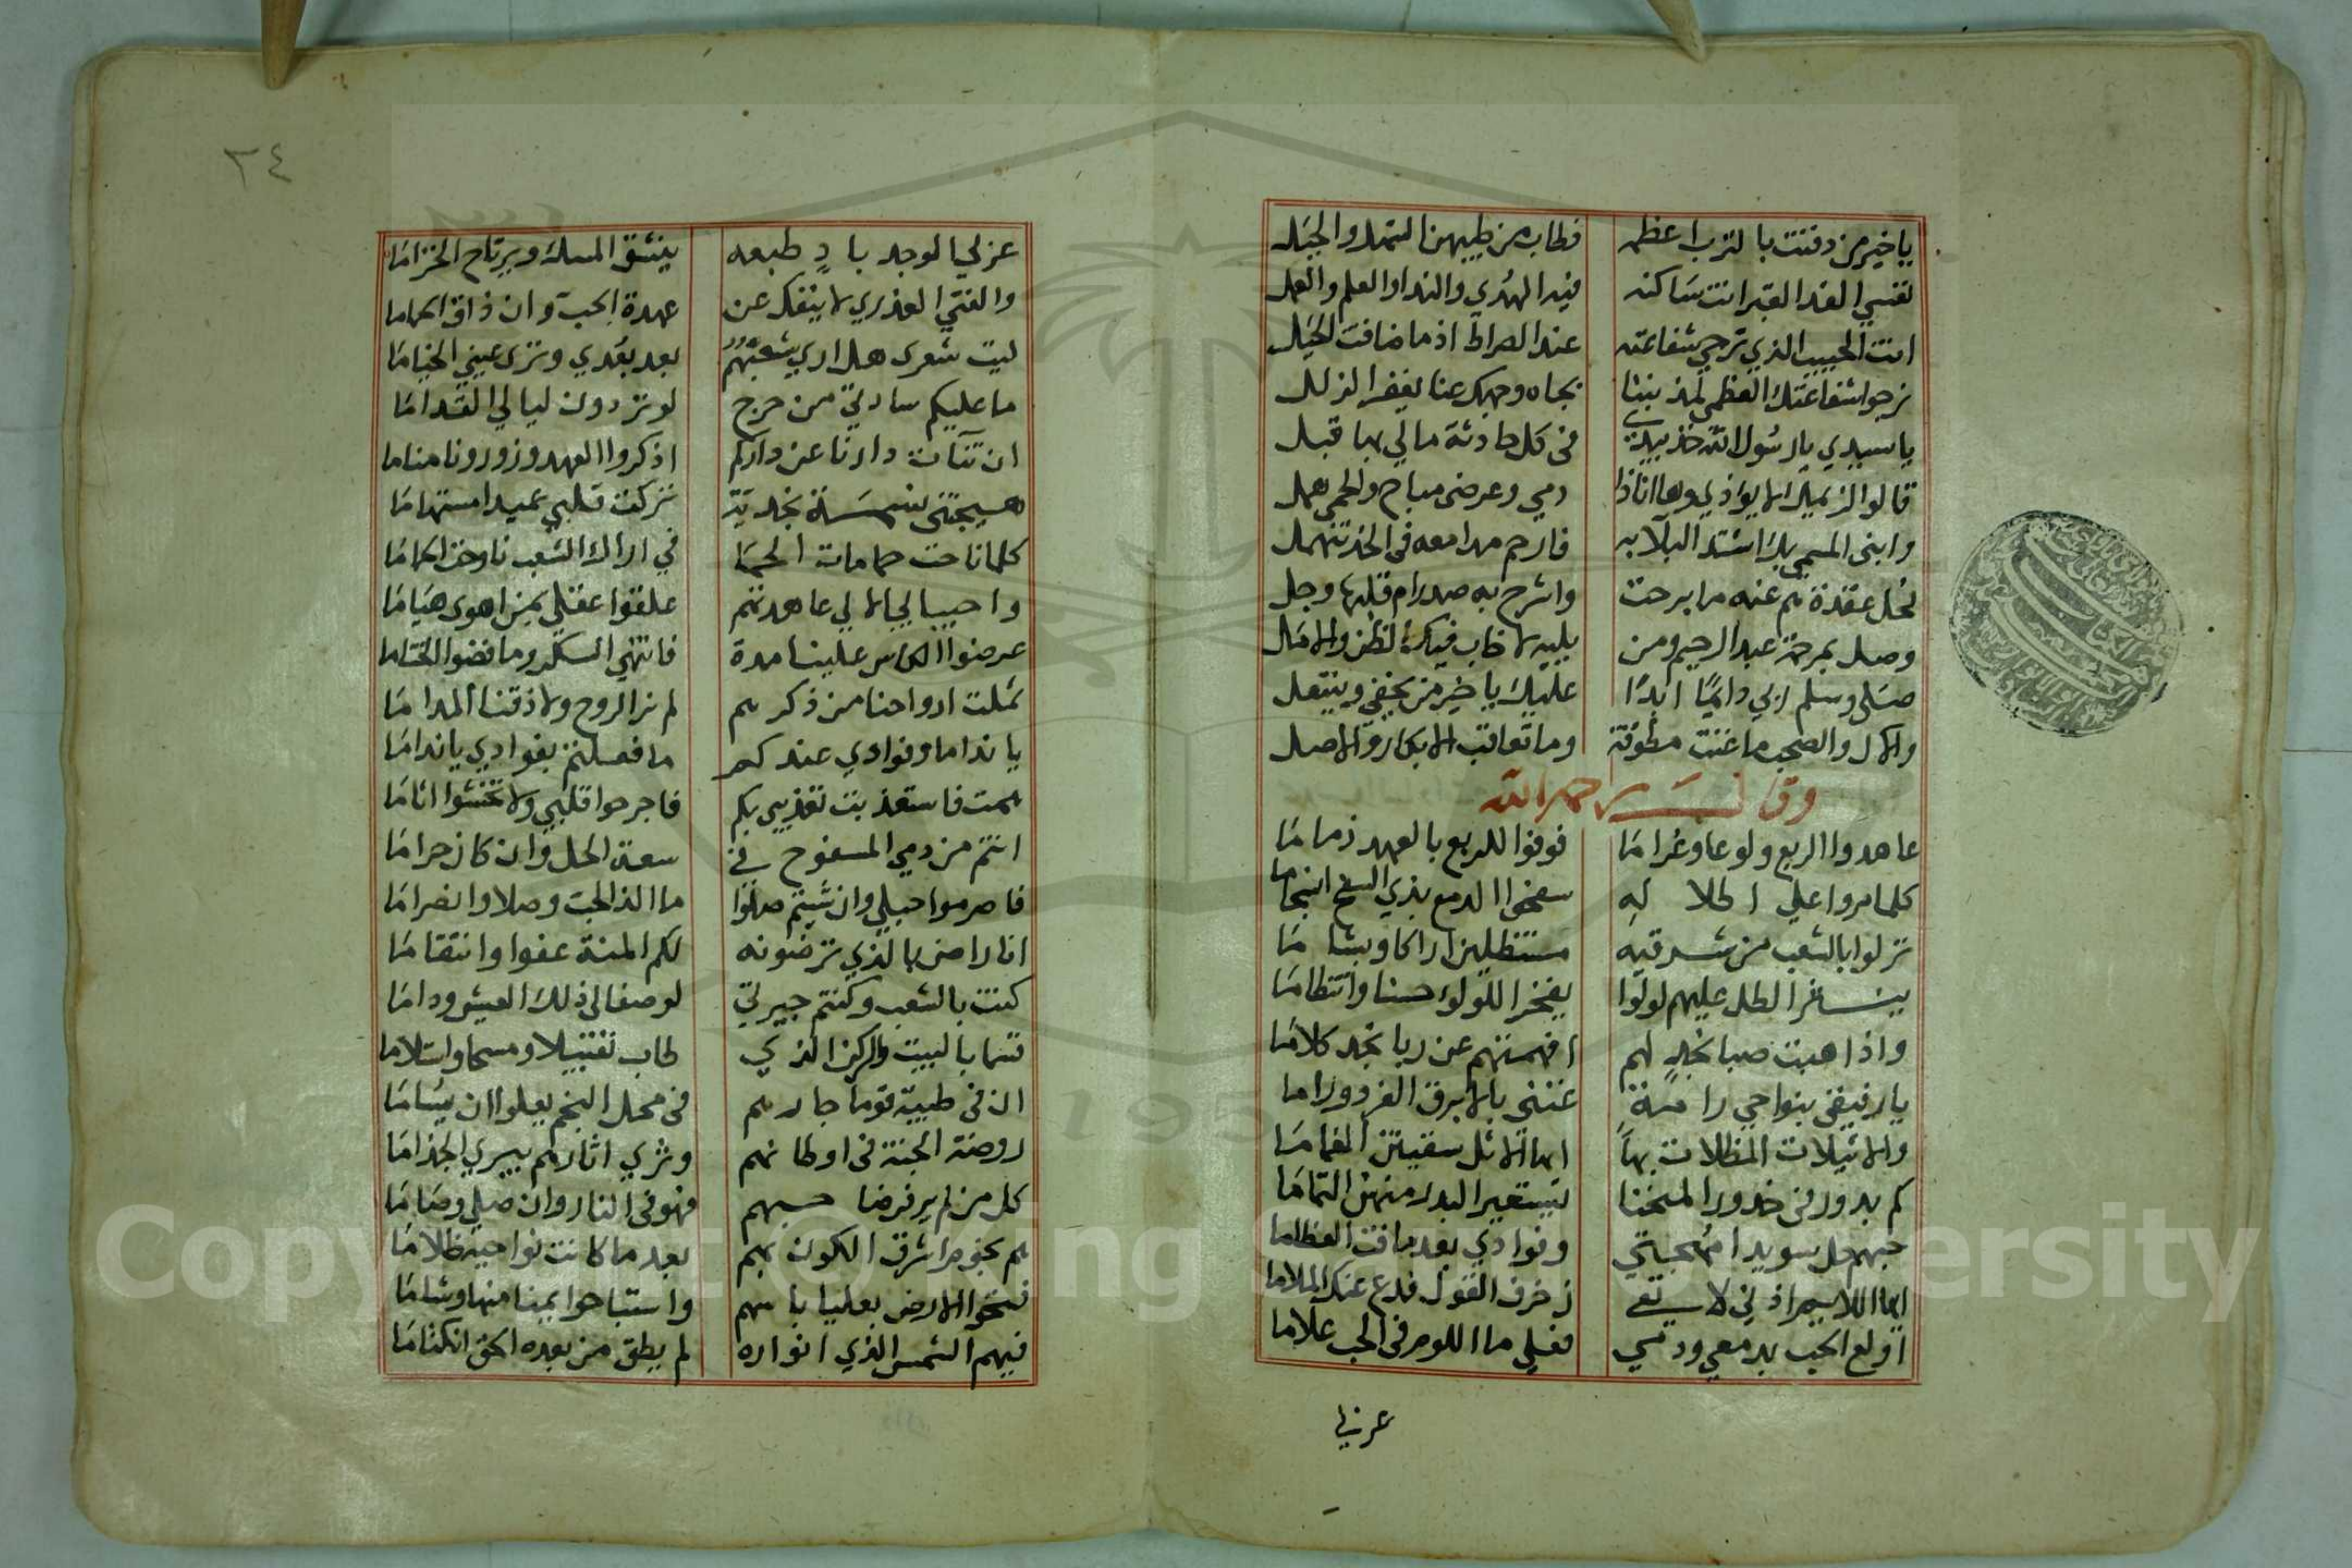 ياخير من دفنت بالترب اعظمه فطاب من طيبهن السهل والجبل
نفسي الفدا لقبر انت ساكنه فيه الهدي والندا والعلم والعمل
انت الحبيب الذي ترجي شفاعته عند الصراط اذا ما ضاقت الحيل
نرجوا شفاعتك العظمي لمذنبنا بجاه وجهك عنا يغفر الزلل
ياسيدي يارسول الله خذ بيدي في كل حادثة مالي بها قبل
قالوا نزيلك لا يوذي وها انا ذا دمي وعرضي مباح والحمي همل
وابني المسمي بك اشتد البلآ به فارحم مدامعه في الخد تنهمل
لحل عقدة هم عنه ما برحت واشرح به صدر ام قلبها وجل
وصل بمرحمة عبد الرحيم ومن يليه لا خاب فيك الظن والامل
صلي وسلم ربي دايما ابدًا عليك يا خير من يحفي وينتعل
والال والصحب ما غنت مطوقة وما تعاقب الابكار والاصل
وقال رحمه الله
عاهدوا الربع ولوعا وغراما فوفوا للربع بالعهد ذماما
كلما مروا علي اطلاله سفحوا الدمع بذي السفح انسجاما
نزلوا بالشعب من شرقيه مستظلين اراكا وبشاما
ينثر الطل عليهم لولوا يفخر اللولوء حسنا وانتظاما
واذا هبت صبا نجد لهم افهمتهم عن ربا نجد كلاما
يارفيقي بنواحي رامة غنني بالابرق الفرد وراما
والاثيلات المظلات بها ايها الاثل سقيتن الغماما
كم بدور في خدور المنحنا يستعير البدر منهن التماما
حبهم حل سويدا مهجتي وفوادي بعد ما فت العظاما
ايها اللايم اذني لا تعي زخرف القول فدع عنك الملاما
اولع الحب بدمعي ودمي فعلي ما اللوم في الحب علاما
عزلي
٢٤
عزلي الوجد باد طبعه ينشق المسك ويرتاح الخزاما
والفتي العذري لا ينفك عن عهدة الحب وان ذاق الحماما
ليت شعري هل اري شعبهم بعد بعدي وتري عيني الخياما
ما عليكم سادتي من حرج لو تردون ليالي القداما
ان تنآت دارنا عن داركم اذكروا العهد وزورونا مناما
هيجتني نسمة نجدية تركت قلبي عميدا مستهاما
كلما ناحت حمامات الحما في اراك الشعب ناوحن الحماما
واحيبا لي لي عاهدتم علقوا عقلي بمن اهوي هياما
عرضوا الكاس علينا مدة فانتهي السكر وما فضوا الختاما
ثملت ارواحنا من ذكرهم لم نر الروح ولا ذقنا المداما
يا نداما وفوادي عندكم ما فعلتم بفوادي ياندا ما
همت فاستعذبت تعذيبي بكم فاجرحوا قلبي ولا تخشوا اثاما
انتم من دمي المسفوح في سعة الحل وان كان حراما
فاصرموا حبلي وان شيتم صلوا ما الذ الحب وصلا وانصراما
انا راض بالذي ترضونه لكم المنة عفوا وانتقاما
كنت بالشعب وكنتم جيرتي لو صفالي ذلك العيش وداما
قسما بالبيت والركن الذي طاب تقتبيلا ومسحا واستلاما
ان في طيبة قوما جارهم في محل النجم يعلوا ان يساما
روضة الجنة في اوطانهم وثري اثارهم يبري الجذاما
كل من لم ير فرضا حبهم فهو في النار وان صلي وصاما
هم نجوم اشرق الكون بهم بعد ما كانت نواحيه ظلاما
فتحوا الارض بعليا باسهم واستباحوا يمينا منها وشاما
فيهم الشمس الذي انواره لم يطق من بعده الحق انكتاما